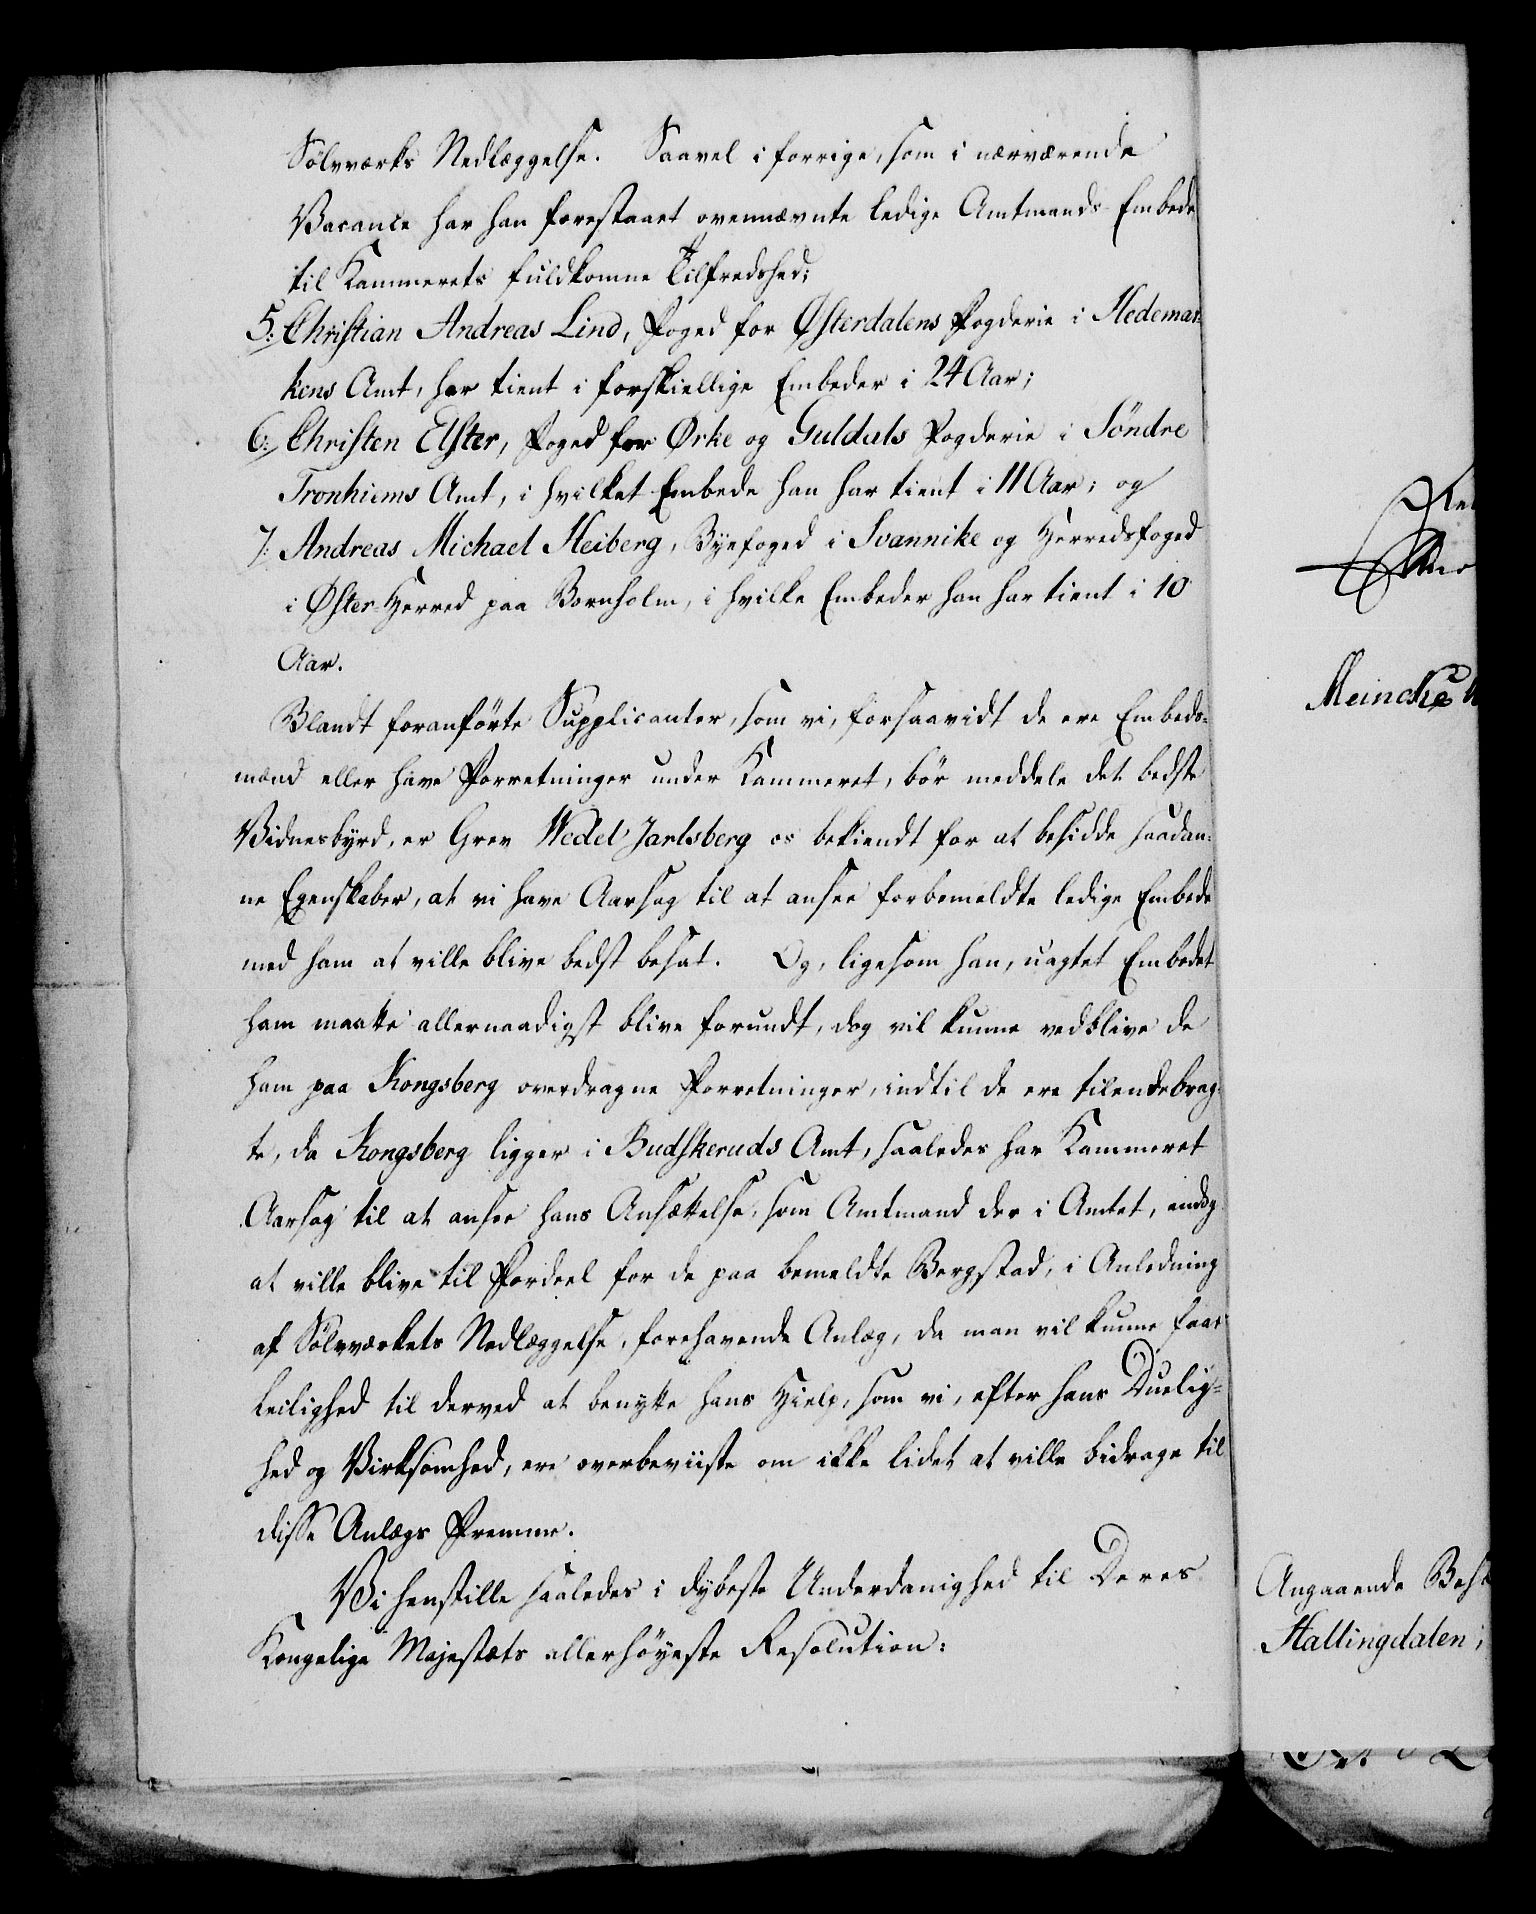 Sølvværks Nedlæggelse. Saavel i forrige, som i nærværende
Vacance har han forestaaet ovennævnte ledige Amtmands-Embede
til Kammerets fuldkomne Tilfredshed;
5. Christian Andreas Lind, Foged for Østerdalens Fogderie i Hedemar-
kens Amt, har tient i forskiellige Embeder i 24 Aar;
6. Christen Elster, Foged for Ørke og Guldals Fogderie i Söndre
Tronhiems Amt, i hvilket Embede han har tient i 11 Aar; og
7. Andreas Michael Heiberg, Byefoged i Svannike og Herredsfoged
i Øster-Herred paa Bornholm, i hvilke Embeder han har tient i 10
Aar.
Blandt foranførte Supplicanter, som vi, forsaavidt de ere Embeds-
mænd eller have Forretninger under Kammeret, bör meddele det bedste
Vidnesbyrd, er Grev Wedel Jarlsberg os bekiendt for at besidde saadan-
ne Egenskaber, at vi have Aarsag til at ansee forbemeldte ledige Embede
med ham at ville blive bedst besat. Og, ligesom han, uagtet Embedet
ham maatte allernaadigst blive forundt, dog vil kunne vedblive de
ham paa Kongsberg overdragne Forretninger, indtil de ere tilendebrag-
te, da Kongsberg ligger i Budskeruds Amt, saaledes har Kammeret
Aarsag til at ansee hans Ansættelse, som Amtmand der i Amtet, endog
at ville blive til Fordeel for de paa bemeldte Bergstad, i Anledning
af Sølvværkets Nedlæggelse, forehavende Anlæg, da man vil kunne faae
Leilighed til derved at benytte hans Hielp, som vi, efter hans Duelig-
hed og Virksomhed, ere overbeviiste om ikke lidet at ville bidrage til
disse Anlægs Fremme.
Vi henstille saaledes i dybeste Underdanighed til Deres
Kongelige Majestæts allerhöyeste Resolution:
Meincke
Angaaende
Hallingdalen